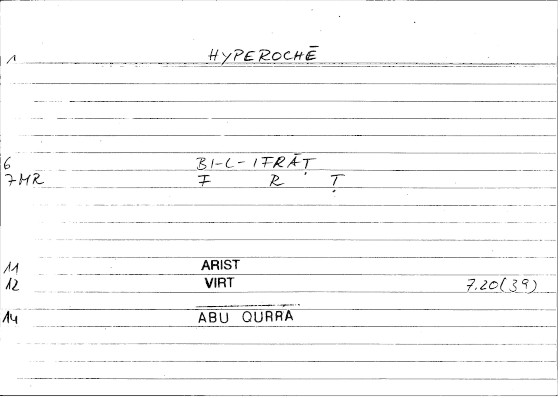 1 HYPEROCHĒ
6 BI-L-IFRĀṬ
7MR F R Ṭ
11 ARIST
12 VIRT 7.20(39)
14 ABU QURRA